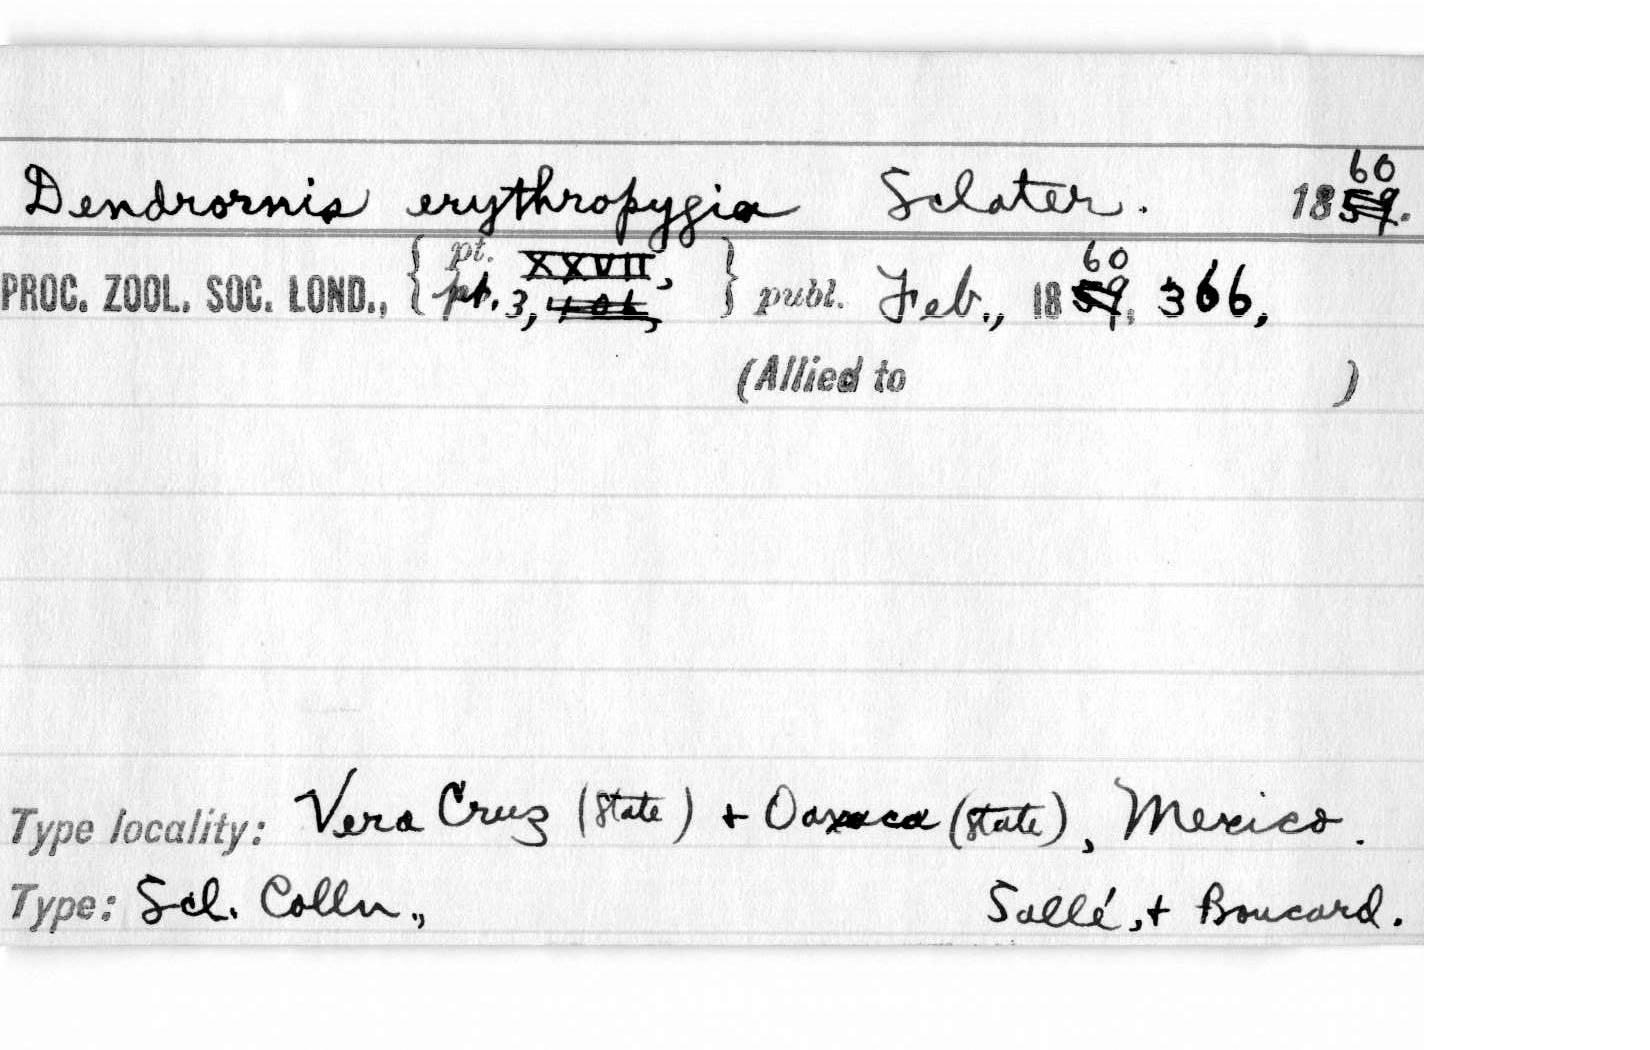 Dendrornis erythropygia Sclater. 1859. 60
PROC. ZOOL. SOC. LOND., { pt. XXVII, pt. 3, 406, } publ. Feb., 1859, 60 366,
(Allied to )
Type locality: Vera Cruz (State) + Oaxaca (State), Mexico.
Type: Scl. Colln., Sallé, + Boucard.